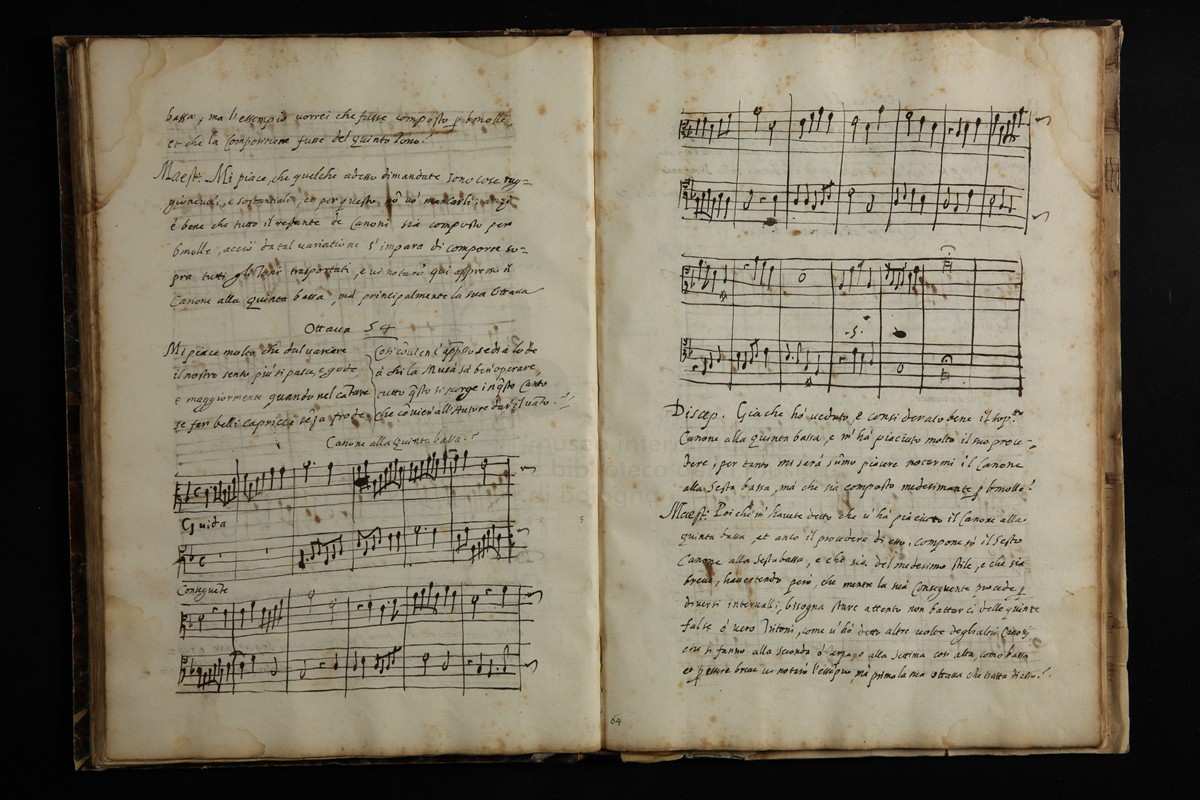 bassa, ma l'essempio vorrei che fusse composto p bmolle,
et che la Compositione fusse del quinto Tono.
Maest: Mi piace, che quelche adesso dimandate sono cose rag=
gioneuoli, e sostantiali, et per questo nõ uò mancarli; anzi
è bene che tutto il restante de Canoni sia composto per
bmolle, acciò da tal uariatione s'impara di comporre so=
pra tutti gli Toni trasportati, e ui notarò qui appresso il
Canone alla quinta bassa, mà principalmente la sua Ottaua
Ottaua 54
Mi piace molto che dal uariare
il nostro sento più si pasce, e gode
e maggiormente quando nel cãtare
se fan belli capricci
Cosi
à chi la Musa sà ben operare,
tutto q̃sto si scorge in q̃sto Canto
che cõuien all'Autore
Canone alla quinta bassa.
Guida
Conseguẽte
.5.
Discep. Gia che hò ueduto, e considerato bene il sop.tto
Canone alla quinta bassa, e m'hà piaciuto molto il suo proce=
dere, per tanto mi sarà sũmo piacere notarmi il Canone
alla Sesta bassa, mà che sia composto medesimante p bmolle.
Maest: Poi chè m'hauete detto che u'hà piaciuto il Canone alla
quinta bassa, et anto il procedere di esso, componerò il Sesto
Canone alla Sesta bassa, e che sia del medesimo stile, e che sia
breue, hauertendo però, che mentre la sua Conseguente procede p
diuersi interualli, bisogna stare attento non battar ci delle quinte
false ò uero Tritoni, come u'hò detto altre uolte degli altri Canoni
che si fanno alla seconda ò alla settima così alta, como bassa
et p essere breue ue notarò l'essẽpio, mà prima la sua ottaua che tratta di esso.
64